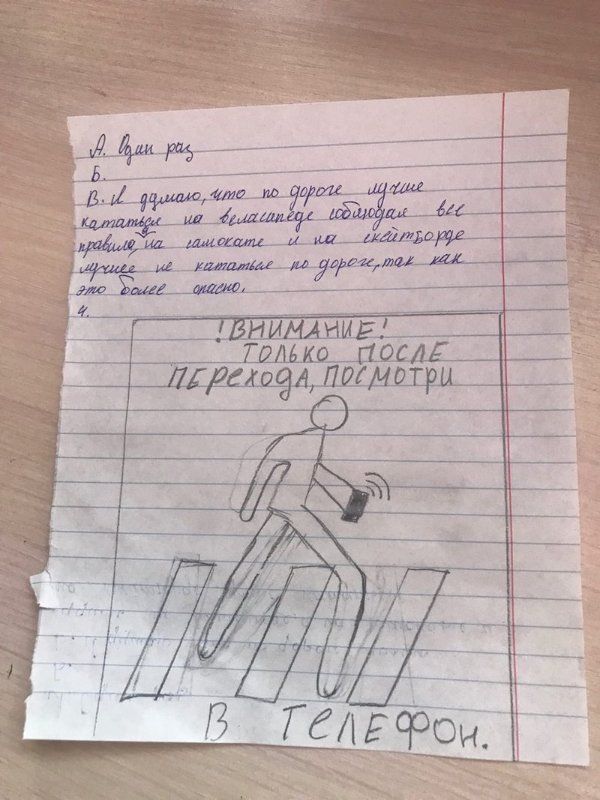 А. Один раз
Б.
В. Я думаю, что по дороге лучше
кататься на веласипеде соблюдая все
правила, а на самокате и на скейтборде
лучшее не кататься по дороге, так как
это более опасно.
4.
!ВНИМАНИЕ!
ТОЛЬКО ПОСЛЕ
ПЕРЕХОДА, ПОСМОТРИ
В ТЕЛЕФОН.